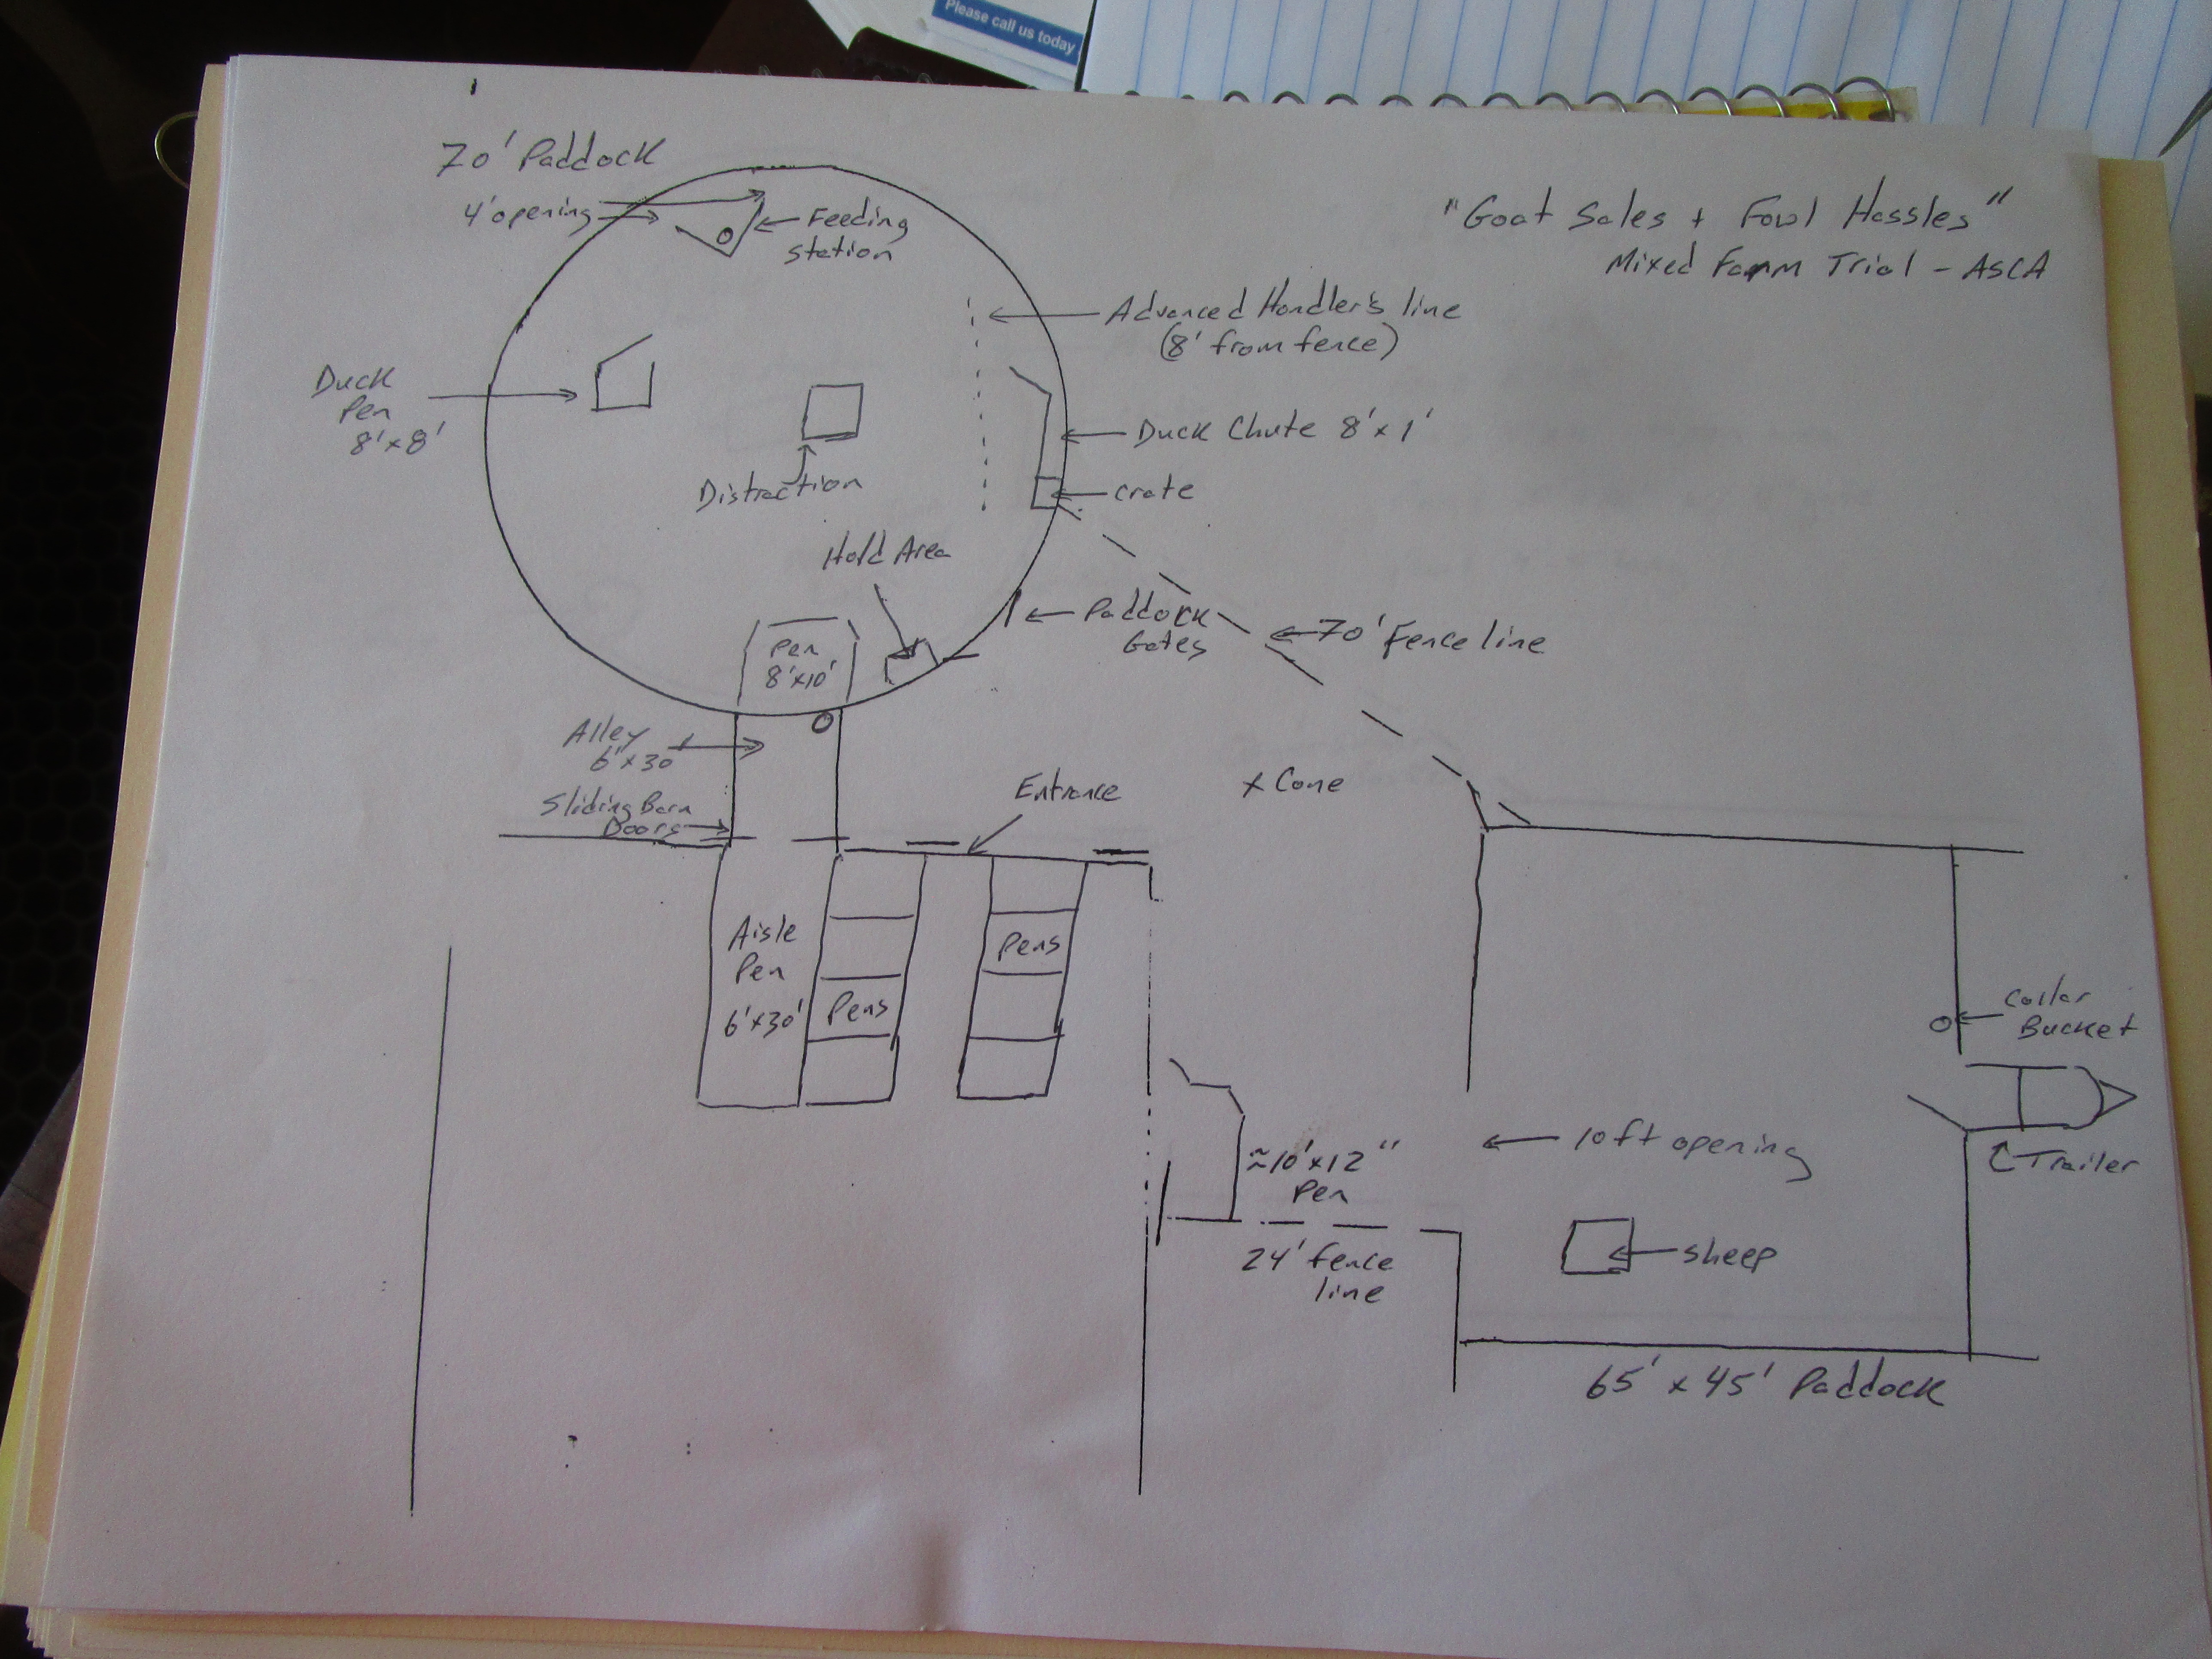 Please call us today
70' Paddock
4' opening
Feeding
Station
"Goat Sales + Fowl Hassles"
Mixed Farm Trial - ASCA
Advanced Handler's line
(8' from fence)
Duck
Pen
8' x 8'
Duck Chute 8' x 1'
Distraction
crate
Hold Area
Paddock
Gates
70' Fence line
Pen
8'x10'
Alley
6' x 30'
Sliding Barn
Doors
Entrance
x Cone
Aisle
Pen
6'x30'
Pens
Pens
Collar
Bucket
≈10'x12"
Pen
10ft opening
Trailer
24' fence
line
sheep
65' x 45' Paddock